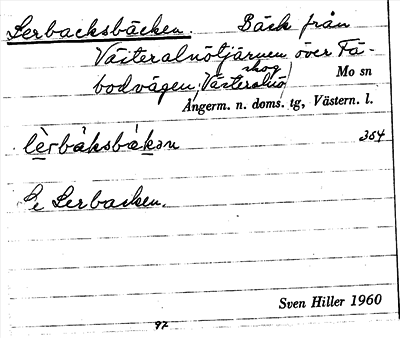 Lerbacksbäcken. Bäck från
Västeralnötjärnen över Fä-
bodvägen, Västeralnö skog
Mo sn
Ångerm. n. doms. tg, Västern. l.
lèrbàksbàkən 364
Se Lerbacken.
Sven Hiller 1960
97